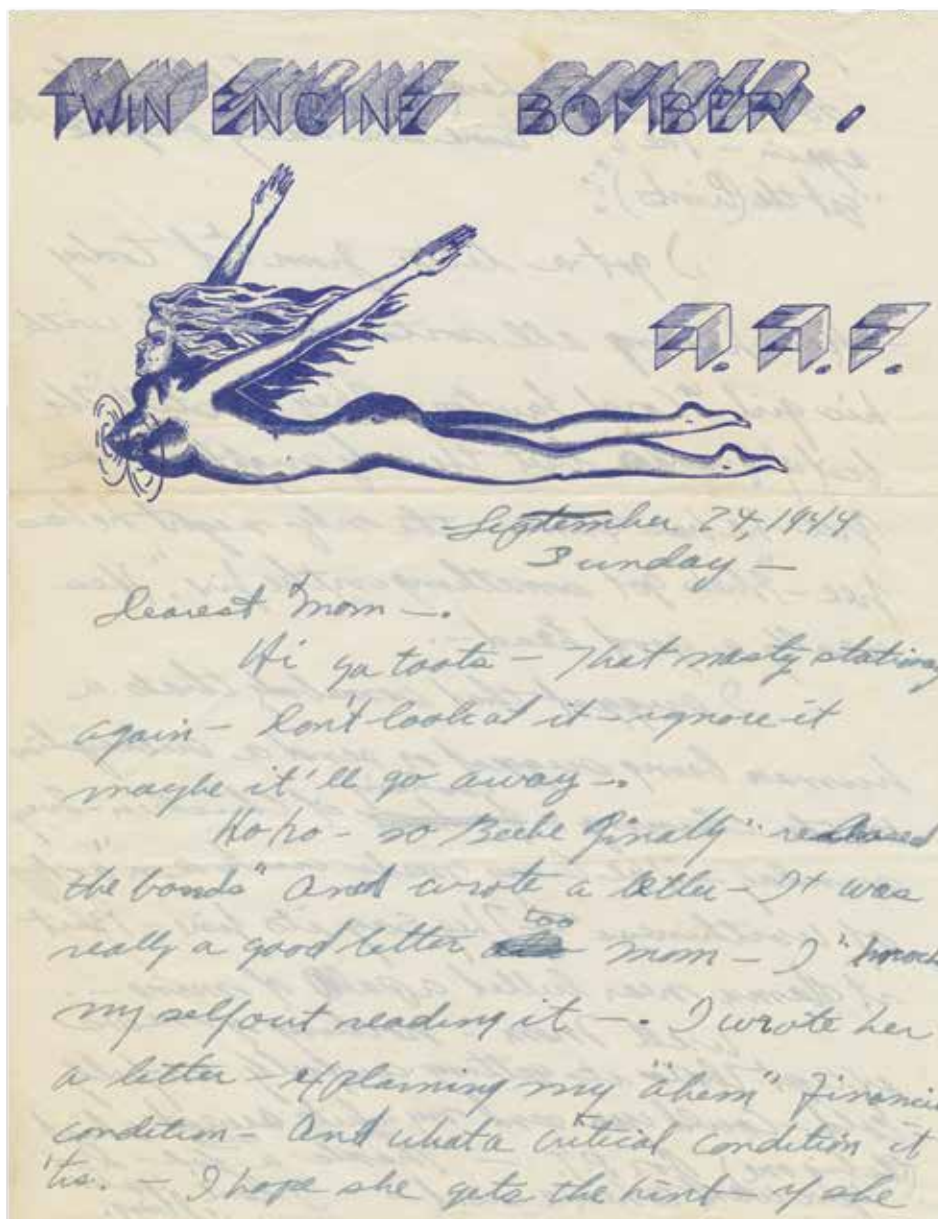 TWIN ENGINE BOMBER.
A.A.F.
September 24, 1944
Sunday —
Dearest Mom —.
Hi ya toots — That nasty stationary
again — Don't look at it — ignore it
maybe it'll go away —.
Ho ho — so Beebe finally "released
the bonds" and wrote a letter — It was
really a good letter too mom — I "knock
myself out reading it —. I wrote her
a letter — explaining my "ahem" financi
condition — And what a critical condition it
'tis. — I hope she gets the hint — if she